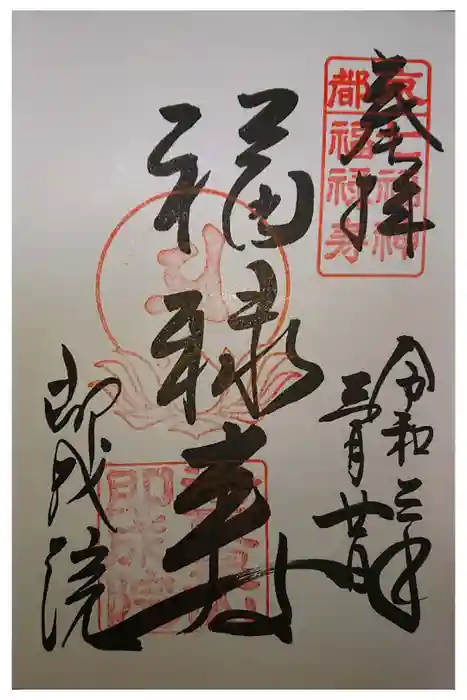 奉拝
京都
七福神
福禄寿
福禄寿
令和三年
三月廿日
即成院
即成院